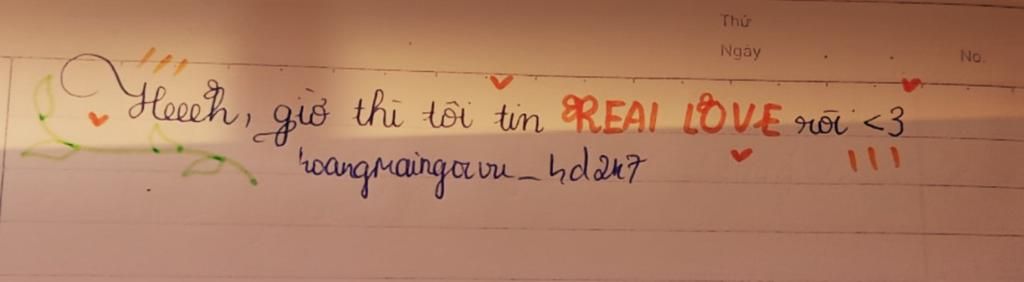 Thứ
Ngày
No.
Heeeh, giờ thì tôi tin REAL LOVE rồi <3
hoangmaingavu_hd2k7